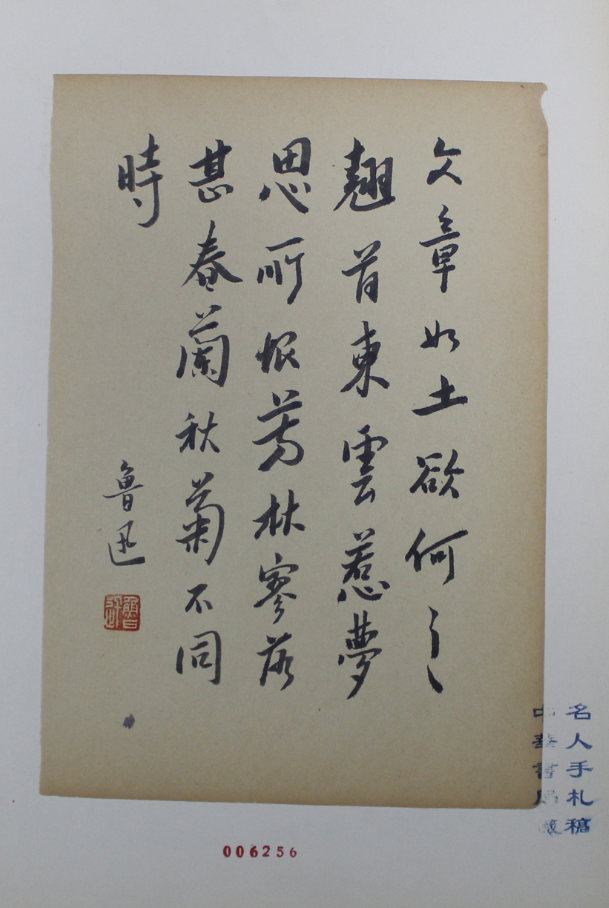 文章如土欲何之
翹首東雲惹夢
思所恨芳林寥落
甚春蘭秋菊不同
時
魯迅
魯迅
名人手札稿
中華書局
006256